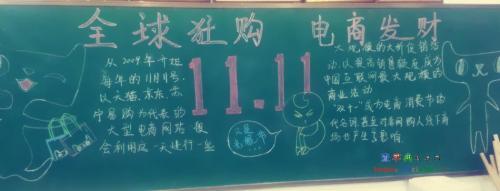 全球狂购 电商发财
从2009年开始
每年的11月11号,
以天猫、京东、苏
宁易购为代表的
大型电商网站一般
会利用这一天进行一些
11.11
大规模的大折促销活
动,以提高销售额逐渐成为
中国互联网最大规模的
商业活动
"双十一"成为电商消费节的
代名词,甚至对非网购人线下商
场也产生了影响